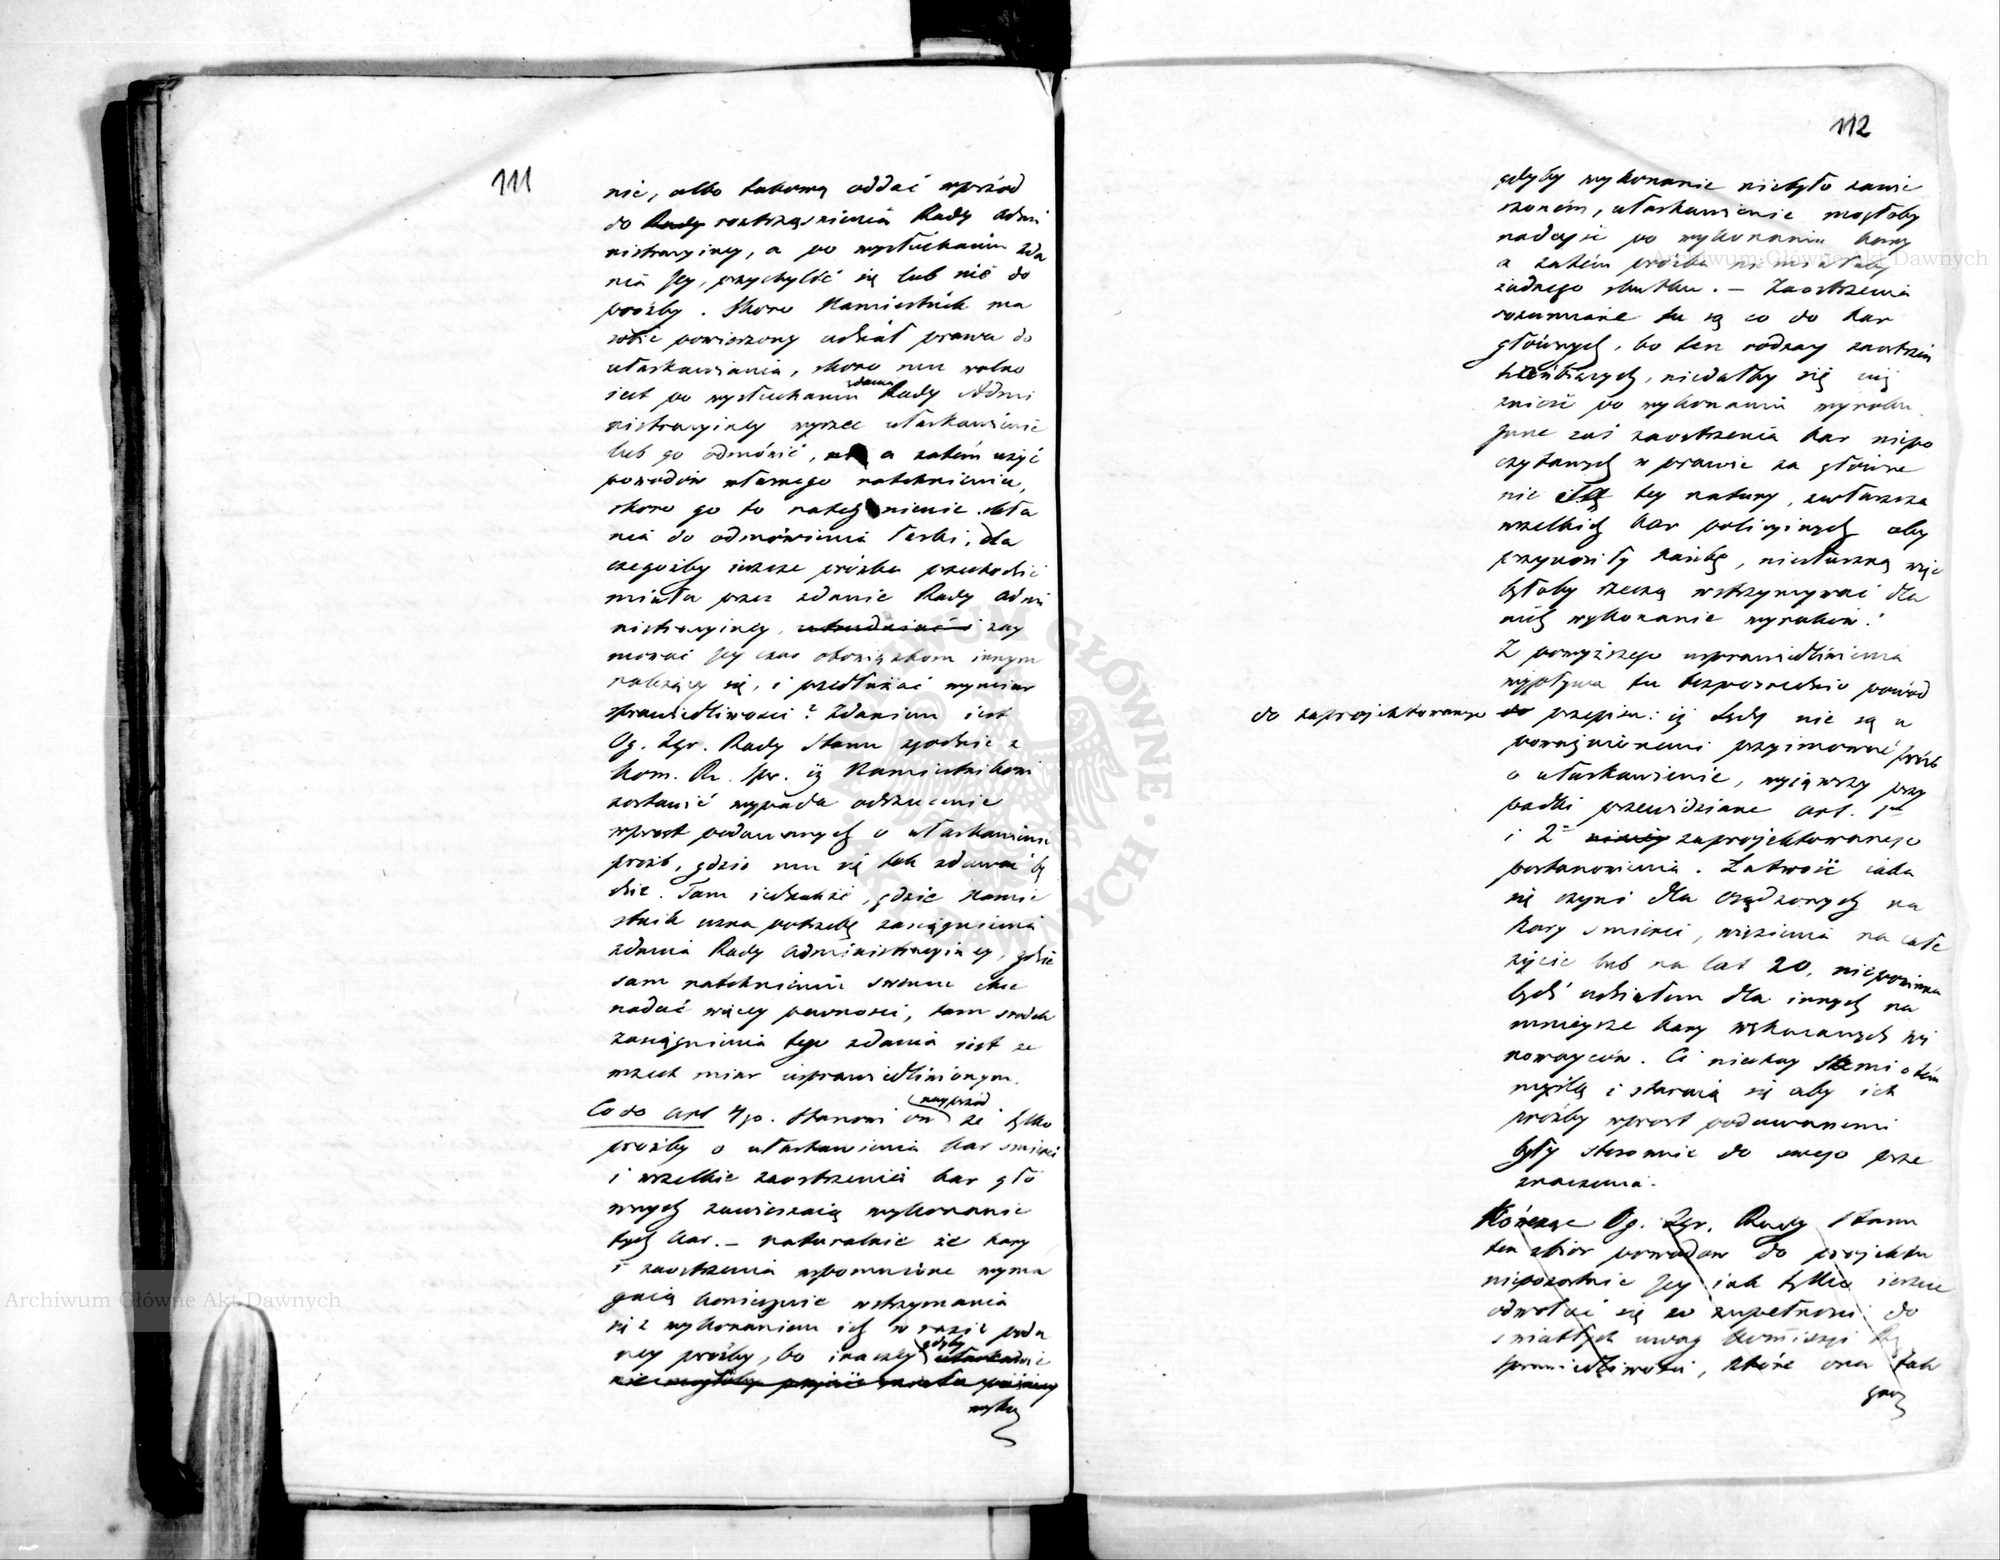 111
nie, albo takową oddać wprzód
do Rady roztrząśnienia Rady Admi
nistracyiney, a po wysłuchaniu zda
nia Jey, przychylić się lub nie do
prośby. Skoro Namiestnik ma
sobie powierzony udział prawa do
ułaskawiania, skoro mu wolno
iest po wysłuchaniu zdania Rady Admi
nistracyiney wyrzec ułaskawienie
lub go odmówić, a zatém użyć
powodów własnego natchnienia,
skoro go to natchnienie skła
nia do odmówienia łaski, dla
czegożby ieszcze prośba przechodzić
miała przez zdanie Rady Admi
nistracyiney, utrudniać i zay
mować Jey czas obowiązkom innym
należący się, i przedłużać wymiar
sprawiedliwości? Zdaniem iest
Og. Zgr. Rady Stanu zgodnie z
Kom. Rz. Spr. iż Namiestnikowi
zostawić wypada odrzucenie
wprost podawanych o ułaskawienie
prośb, gdzie mu się tak zdawać bę
dzie. Tam iednakże, gdzie Namie
stnik uzna potrzebę zasiągnienia
zdania Rady Administracyiney, gdzie
sam natchnieniu swemu chce
nadać więcey pewności, tam środek
zasiągnienia tego zdania iest ze
wszech miar usprawiedliwionym.
Co do Art 4go. Stanowi on nayprzód że tylko
prośby o ułaskawienia kar śmierci
i wszelkie zaostrzenia kar głó
wnych zawieszaią wykonanie
tych kar. – Naturalnie że kary
i zaostrzenia wspomnione wyma
gaią koniecznie wstrzymania
się z wykonaniem ich w razie poda
ney prośby, bo inaczey gdyby ułaskawie
nie mogłoby
wyko
112
gdyby wykonanie niebyło zawie
szoném, ułaskawienie mogłoby
nadejść po wykonaniu kary
a zatém prośba niemiałaby
żadnego skutku. – Zaostrzenia
rozumiane tu są co do kar
głównych, bo ten rodzay zaostrzeń
hańbiących, niedałby się iuż
znieść po wykonaniu wyroku.
Inne zaś zaostrzenia kar niepo
czytanych w prawie za główne
nie są tey natury, zwłaszcza
wszelkich kar policyinych aby
przynosiły hańbę, niesłuszną więc
byłoby rzeczą wstrzymywać dla
nich wykonanie wyroków.
Z powyższego usprawiedliwienia
wypływa tu bezpośrednio powód
do zaprojektowanego do przepisu: iż Sądy nie są u
poważnionemi przyimować prośb
o ułaskawienie, wyiąwszy przy
padki przewidziane art. 1m
i 2m zaprojektowanego
postanowienia. Łatwość iaka
się czyni dla osądzonych na
kary śmierci, więzienia na całe
życie lub na lat 20, niepowinna
być udziałem dla innych na
mnieysze kary wskazanych wi
nowayców. Ci niechay sami o tém
myślą i staraią się aby ich
prośby wprost podawanemi
były stosownie do swego prze
znaczenia.
Kończąc Og. Zgr. Rady Stanu
ten zbiór powodów do projektu
niepozostaie Jey iak tylko ieszcze
odwołać się w zupełności do
światłych uwag Kommissyi Rz
Sprawiedliwości, które ona tak